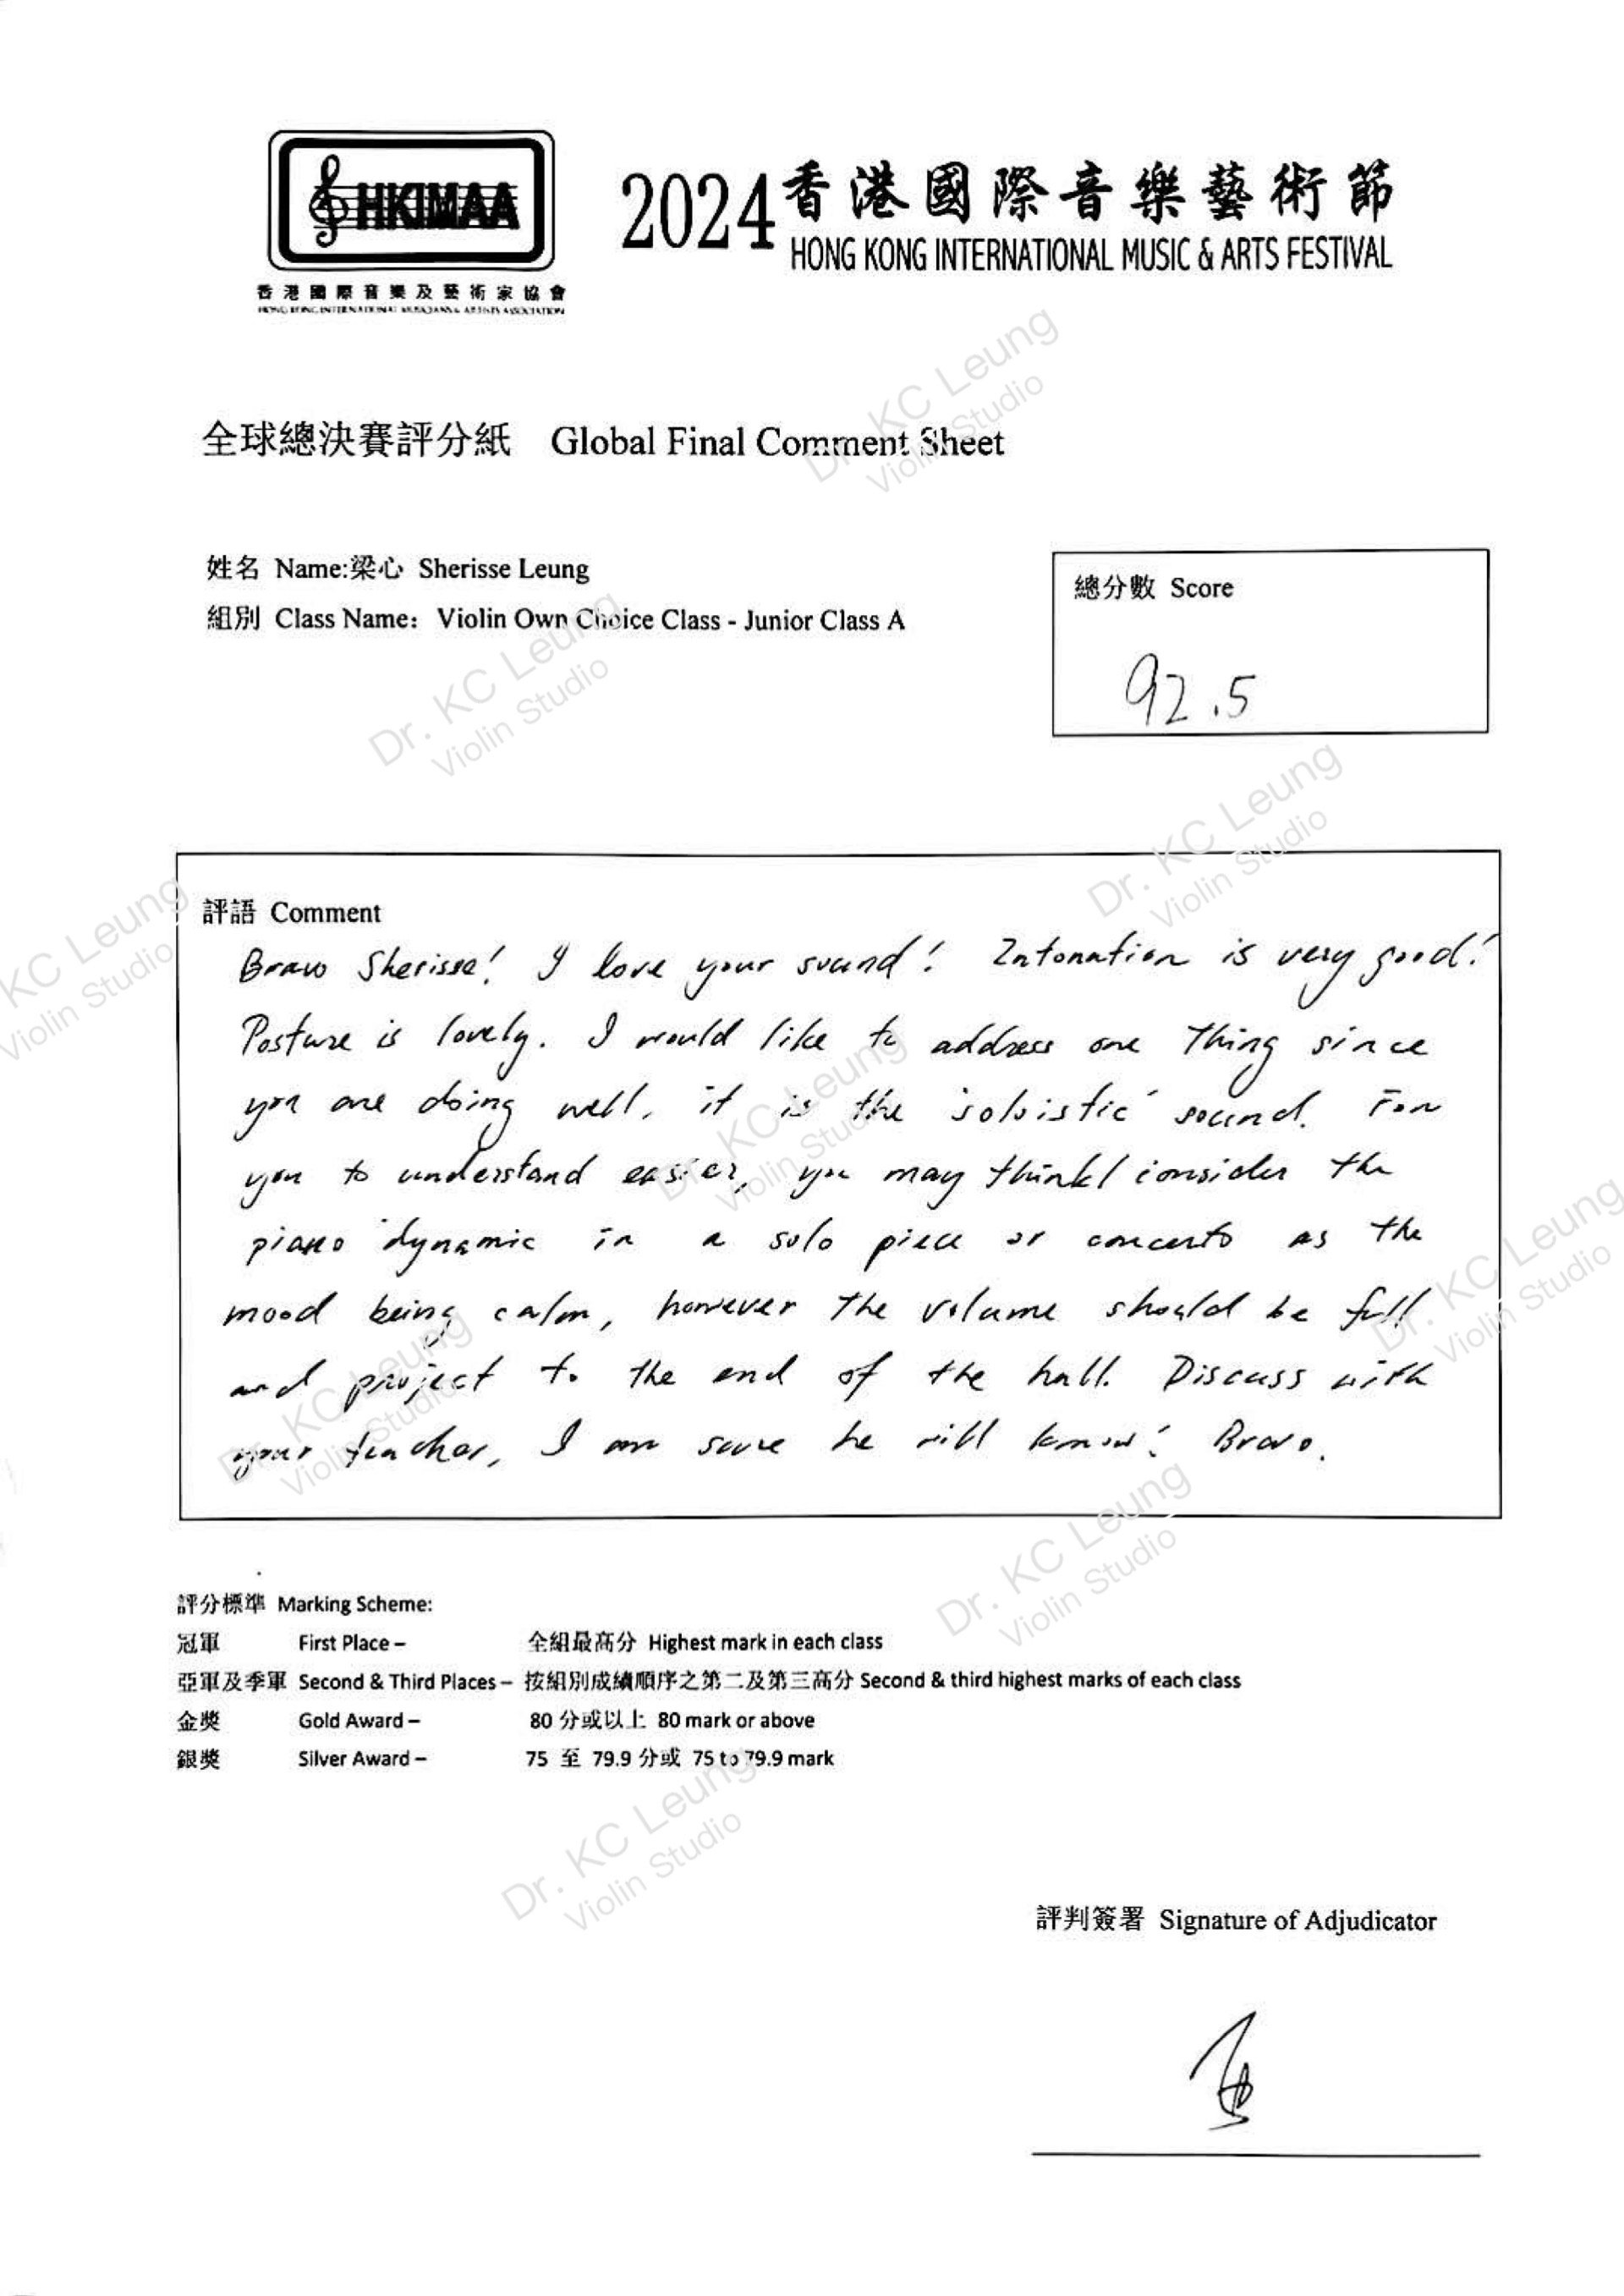 HKIMAA
香港國際音樂及藝術家協會
HONG KONG INTERNATIONAL MUSICIANS & ARTISTS ASSOCIATION
2024香港國際音樂藝術節
HONG KONG INTERNATIONAL MUSIC & ARTS FESTIVAL
全球總決賽評分紙 Global Final Comment Sheet
姓名 Name:梁心 Sherisse Leung
組別 Class Name: Violin Own Choice Class - Junior Class A
總分數 Score
92.5
評語 Comment
Bravo Sherisse! I love your sound! Intonation is very good!
Posture is lovely. I would like to address one thing since
you are doing well, it is the 'soloistic' sound. For
you to understand easier, you may think/consider the
piano dynamic in a solo piece or concerto as the
mood being calm, however the volume should be full
and project to the end of the hall. Discuss with
your teacher, I am sure he will know! Bravo.
評分標準 Marking Scheme:
冠軍 First Place – 全組最高分 Highest mark in each class
亞軍及季軍 Second & Third Places – 按組別成績順序之第二及第三高分 Second & third highest marks of each class
金獎 Gold Award – 80 分或以上 80 mark or above
銀獎 Silver Award – 75 至 79.9 分或 75 to 79.9 mark
評判簽署 Signature of Adjudicator
Dr. KC Leung
Violin Studio
Dr. KC Leung
Violin Studio
Dr. KC Leung
Violin Studio
KC Leung
Violin Studio
Dr. KC Leung
Violin Studio
Dr. KC Leung
Violin Studio
Dr. KC Leung
Violin Studio
Dr. KC Leung
Violin Studio
Dr. KC Leung
Violin Studio